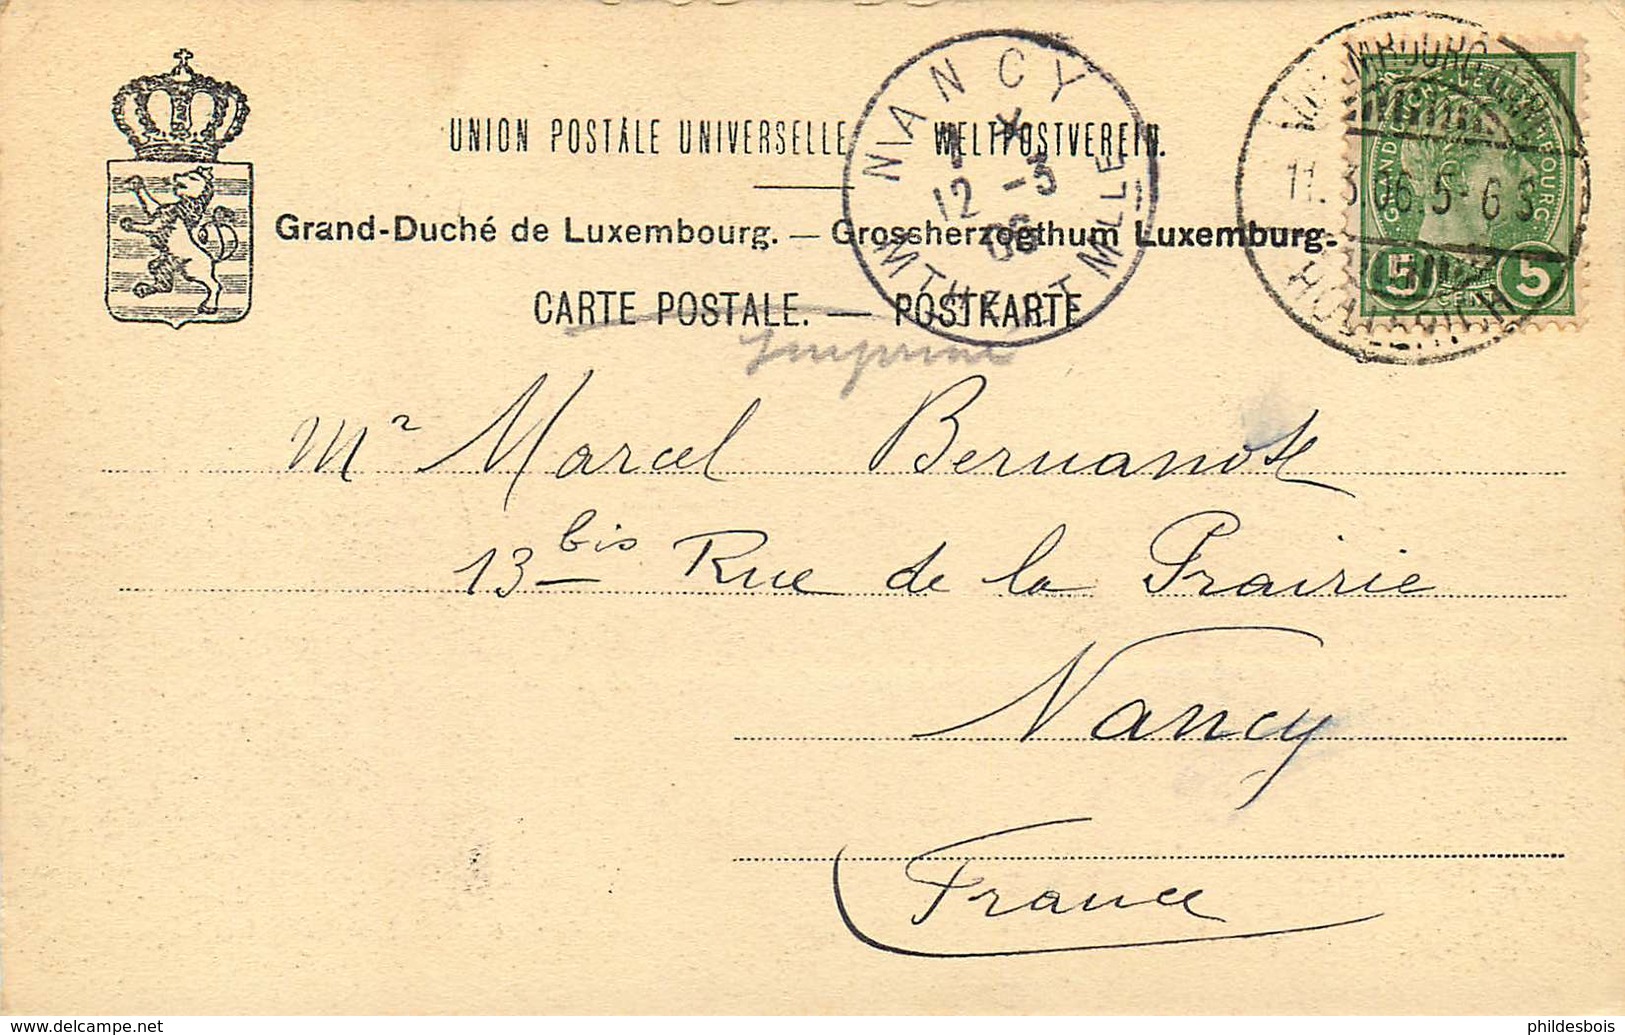 UNION POSTALE UNIVERSELLE WELTPOSTVEREIN.
Grand-Duché de Luxembourg. — Grossherzogthum Luxemburg.
CARTE POSTALE. — POSTKARTE
Imprimé
NANCY
12 -3
06
MTHE ET MLLE
11.3.06.5-6S
HOLLERICH
5 5
Mr Marcel
13 bis Rue de la Prairie
Nancy
France
www.delcampe.net
phildesbois